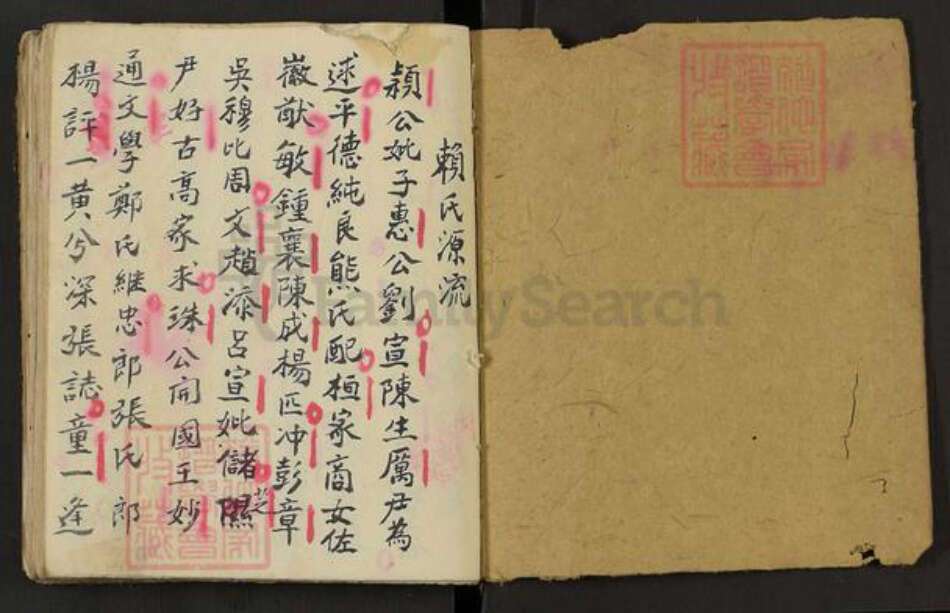 賴氏源流
潁公妣子惠公劉宣陳生厲尹為
逑平德純良熊氏配桓家商女佐
徽猷敏鍾襄陳成楊匹冲彭章
吳穆比周文趙添呂宣妣儲隰
尹好古高家求珠公開國王妙
通文學鄭氏継忠郎張氏郎
楊評一黃兮深張誌童一逢
FamilySearch